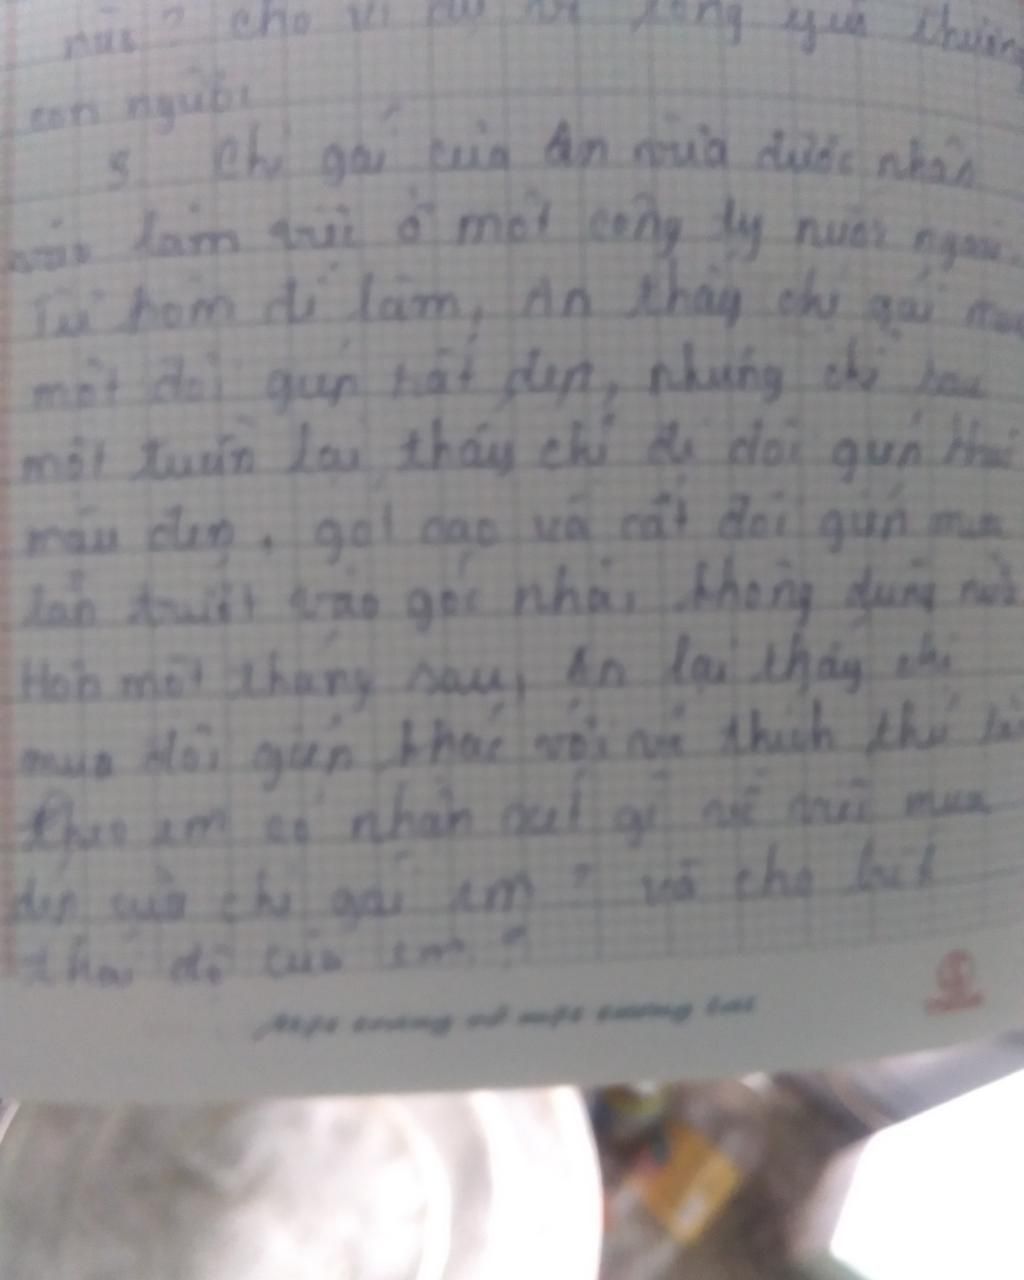 nào? cho ví dụ về lòng yêu thương
con người
5 Chị gái của An vừa được nhận
vào làm việc ở một công ty nước ngoài.
Từ hôm đi làm, An thấy chị gái mua
một đôi guốc rất đẹp, nhưng chỉ sau
một tuần lại thấy chị đi đôi
màu đen, gót cao và cất đôi mua
lần trước vào góc nhà, không dùng nữa
Hơn một tháng sau, An lại thấy chị
mua đôi khác với vẻ thích thú
Theo em có nhận xét gì về việc mua
của chị gái em? và cho biết
thái độ của em?